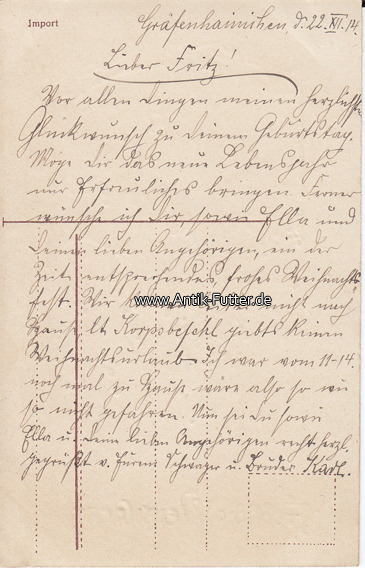 Import
Gräfenhainichen, d. 22. XII. 14.
Lieber Fritz!
Vor allen Dingen meinen herzlichsten
Glückwunsch zu deinem Geburtstag.
Möge dir das neue Lebensjahr
nur Erfreuliches bringen. Ferner
wünsche ich dir sowie Ella und
Deinen lieben Angehörigen, ein der
Zeit entsprechendes frohes Weihnachts-
fest. Wir nicht nach
www.Antik-Futter.de
Hause lt. Korpsbefehl giebts keinen
Weihnachtsurlaub. Ich war vom 11-14.
noch mal zu Hause wäre also so wie
so nicht gefahren. Nun sei du sowie
Ella u. Deine lieben Angehörigen recht herzl.
gegrüßt v. Eurem Schwager u. Bruder Karl.